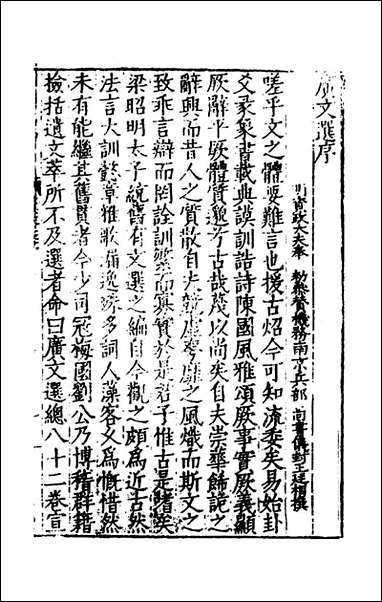 廣文選序
明資政大夫奉 勑叅贊機務南京兵部尚書儀封王廷相撰
嗟乎文之體要難言也援古炤今可知流委矣易始卦
爻彖象書載典謨訓誥詩陳國風雅頌厥事實厥義顯
厥辭平厥體質邈乎古哉蔑以尚矣自夫崇華飾詭之
辭興而昔人之質散自夫競虛夸靡之風熾而斯文之
致乖言辯而罔詮訓繁而寡實於是君子惟古是績矣
梁昭明太子統舊有文選之編自今觀之頗為近古然
法言大訓懿章雅歌漏逸殊多詞人藻客久為慨惜然
未有能繼其舊貫者今少司冠梅國劉公乃博稽群籍
檢括遺文萃所不及選者命曰廣文選總八十二卷宣